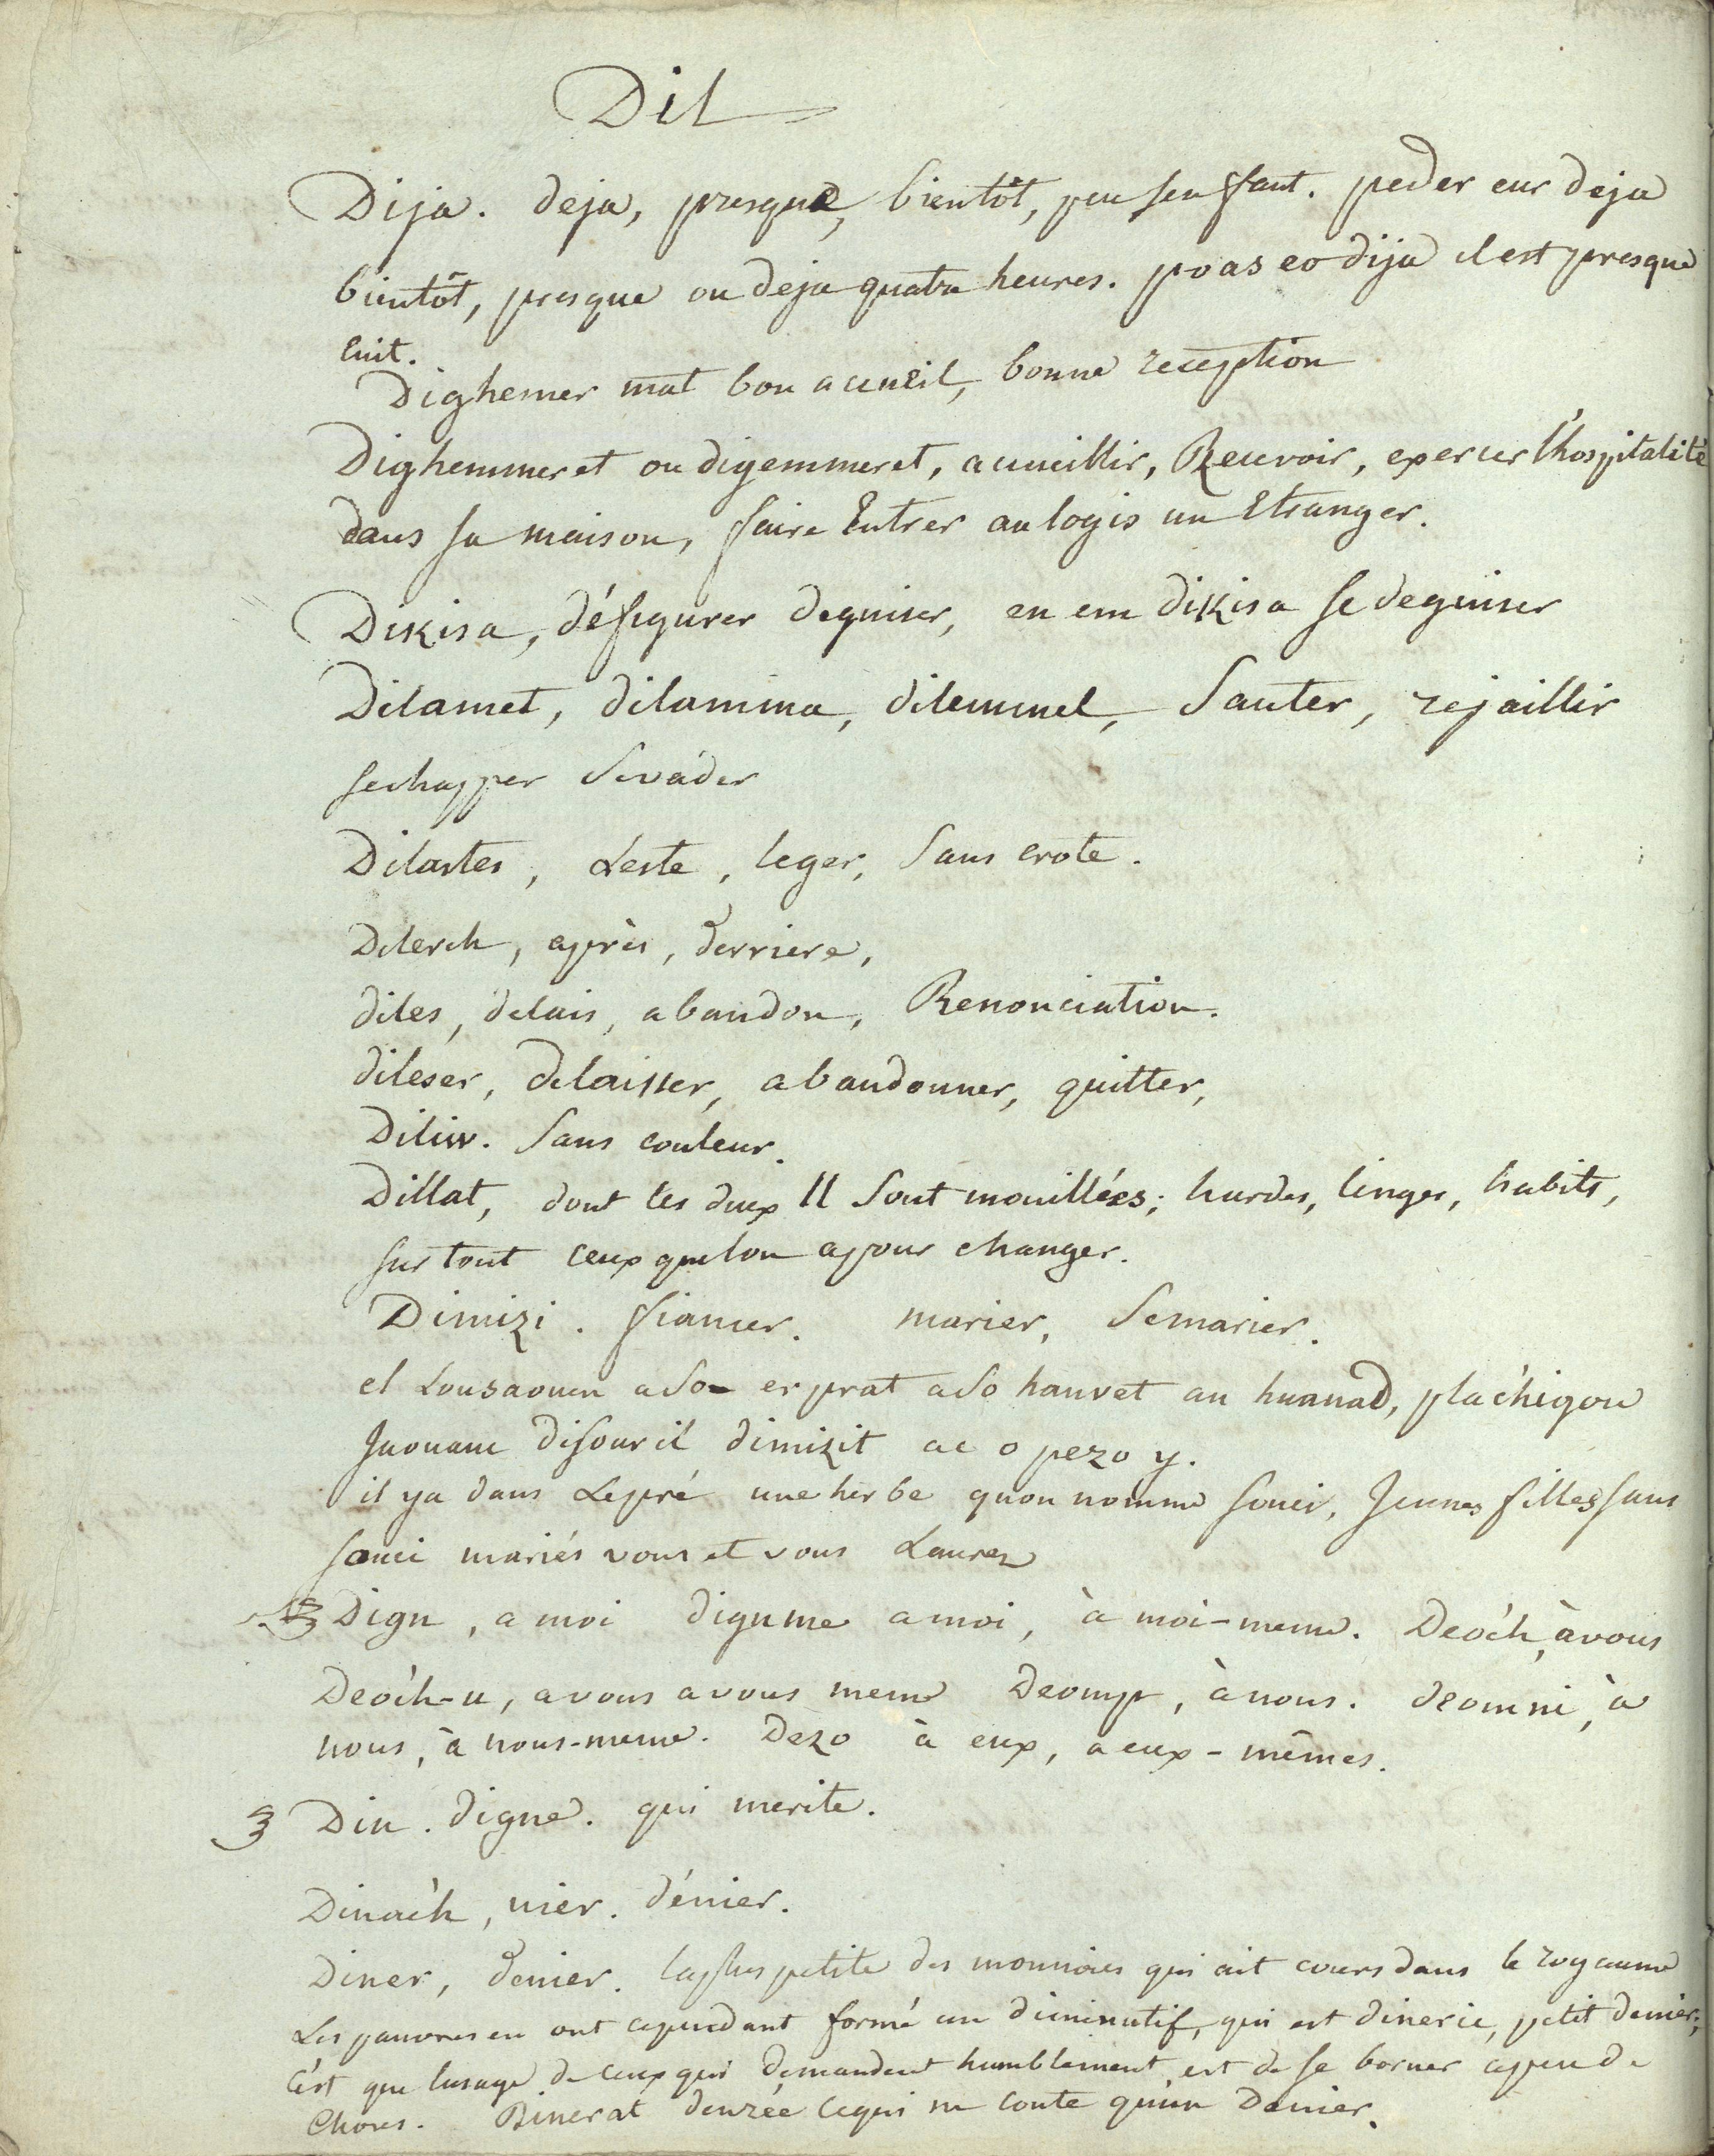 Dil
Dija. deja, presque, bientôt, peu sen faut. peder eur deja
bientôt, presque ou deja quatre heures. poas eo dija il est presque
cuit.
Dighemer mat bon accueil, bonne reception
Dighemmeret ou digemmeret, accueillir, Recevoir, exercer l'hospitalité
dans sa maison, faire Entrer au logis un Etranger.
Dikisa, défigurer deguiser, en em dikisa se deguiser
Dilamet, dilamma, dilemmel, Sauter, rejaillir
sechapper Seváder
Dilastes, Leste, leger, Sans crote.
Dilerch, après, derriere,
diles, delais, abandon, Renonciation.
diléser, delaisser, abandonner, quitter,
Diliw. Sans couleur.
Dillat, dont les deux ll Sont mouillées; hardes, linges, habits,
sur tout ceux que lon a pour changer.
Dimizi. fiancer. marier, Semarier.
el Lousaouen a So er prat a So hanvet an huanad, plac'higou
Jaouanc disouci dimizit ac o pezo y.
il ya dans Le pré une herbe quon nomme souci, Jeunes filles sans
souci mariés vous et vous Laurez
Dign, a moi digume a moi, à moi-meme. Deoc'h, à vous
Deoc'h-u, a vous a vous meme Deomp, à nous. deomni, à
nous, à nous-meme. Dezo à eux, a eux-mêmes.
Din. digne. qui merite.
Dinac'h, nier. dénier.
Diner, denier. la plus petite des monnoies qui ait cours dans le royaume
Les pauvres en ont cependant formé un diminutif, qui est dineric, petit denier;
C'est que lusage de ceux qui demandent humblement est de se borner a peu de
Choses. Dinerat denrée ce qui ne coute qu'un Denier.